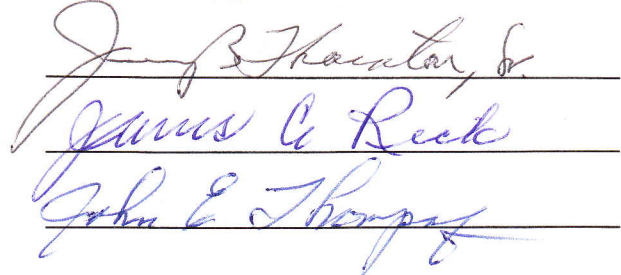 B. Thornton, Sr.
James A Reek
John E Thompson